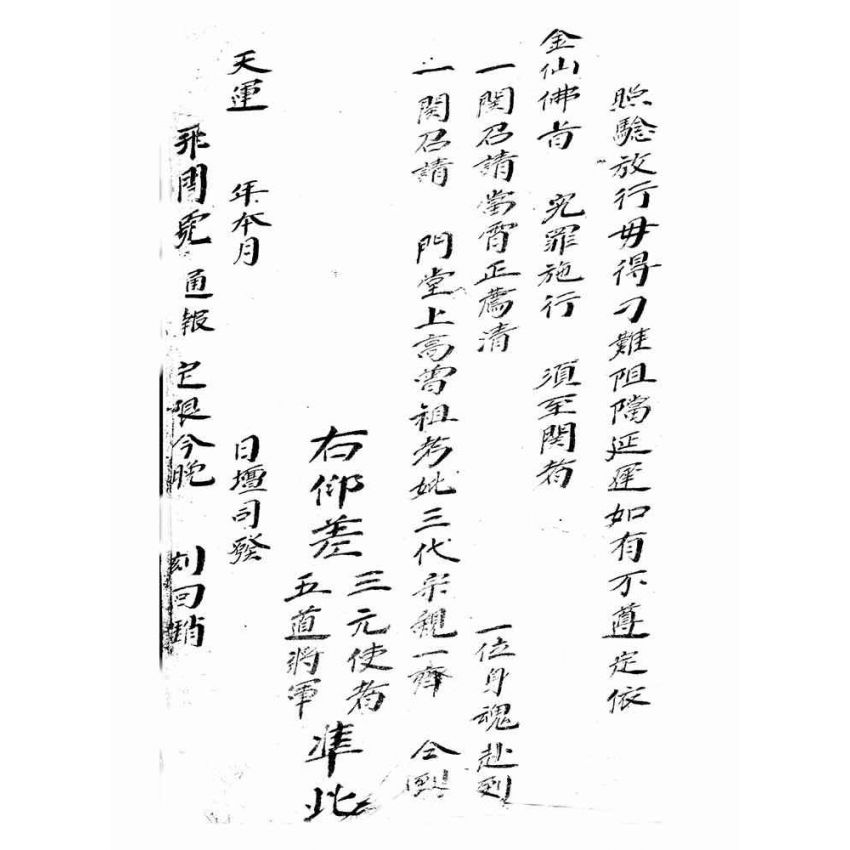 照驗放行毋得刁難阻擋延遲如有不遵定依
金仙佛旨 究罪施行 須至関者
一関召請當宵正薦清 一位身魂赴到
一関召請 門堂上高曾祖考妣三代宗親一齊 仝到
右仰差 三元使者 五道將軍 準此
天運 年本月 日壇司發
飛関 通報 定限今晚 刻回銷